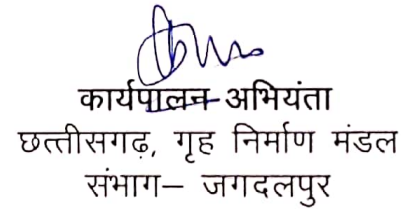 कार्यपालन अभियंता
छत्तीसगढ़, गृह निर्माण मंडल
संभाग– जगदलपुर